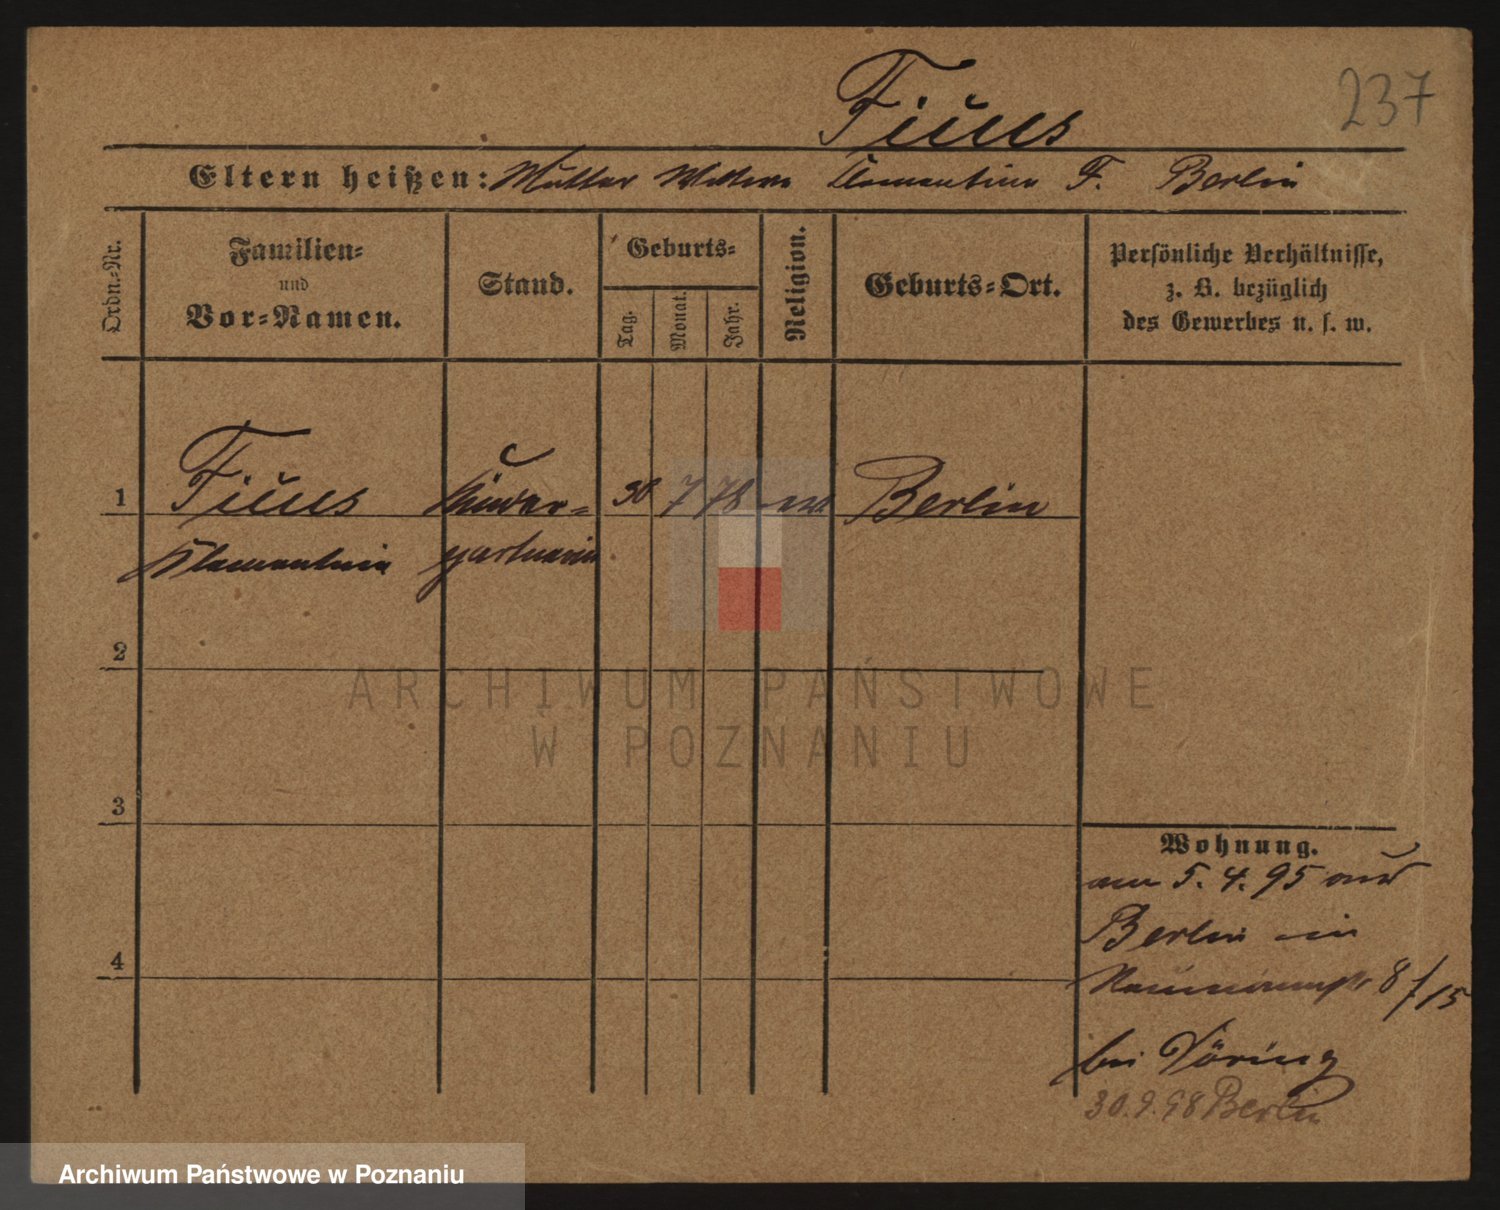 237
Ficus
Eltern heißen: Mutter Wittwe Clementine F. Berlin
Ordn.-Nr.
Familien-
und
Vor-Namen.
Stand.
Geburts-
Tag.
Monat.
Jahr.
Religion.
Geburts-Ort.
Persönliche Verhältnisse,
z. B. bezüglich
des Gewerbes u. s. w.
1
Kinder-
30 7 78
Berlin
Klementine
gärtnerin
2
ARCHIWUM PAŃSTWOWE
W POZNANIU
3
Wohnung.
am 5. 4. 95 aus
4
Berlin in
8/15
bei Döring
30.9.98 Berlin
Archiwum Państwowe w Poznaniu